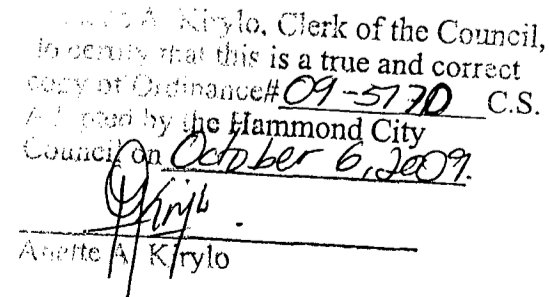 A. Kirylo, Clerk of the Council,
to certify that this is a true and correct
copy of Ordinance# 09-5170 C.S.
Adopted by the Hammond City
Council on October 6, 2009.
AKirylo
Anette A. Kirylo